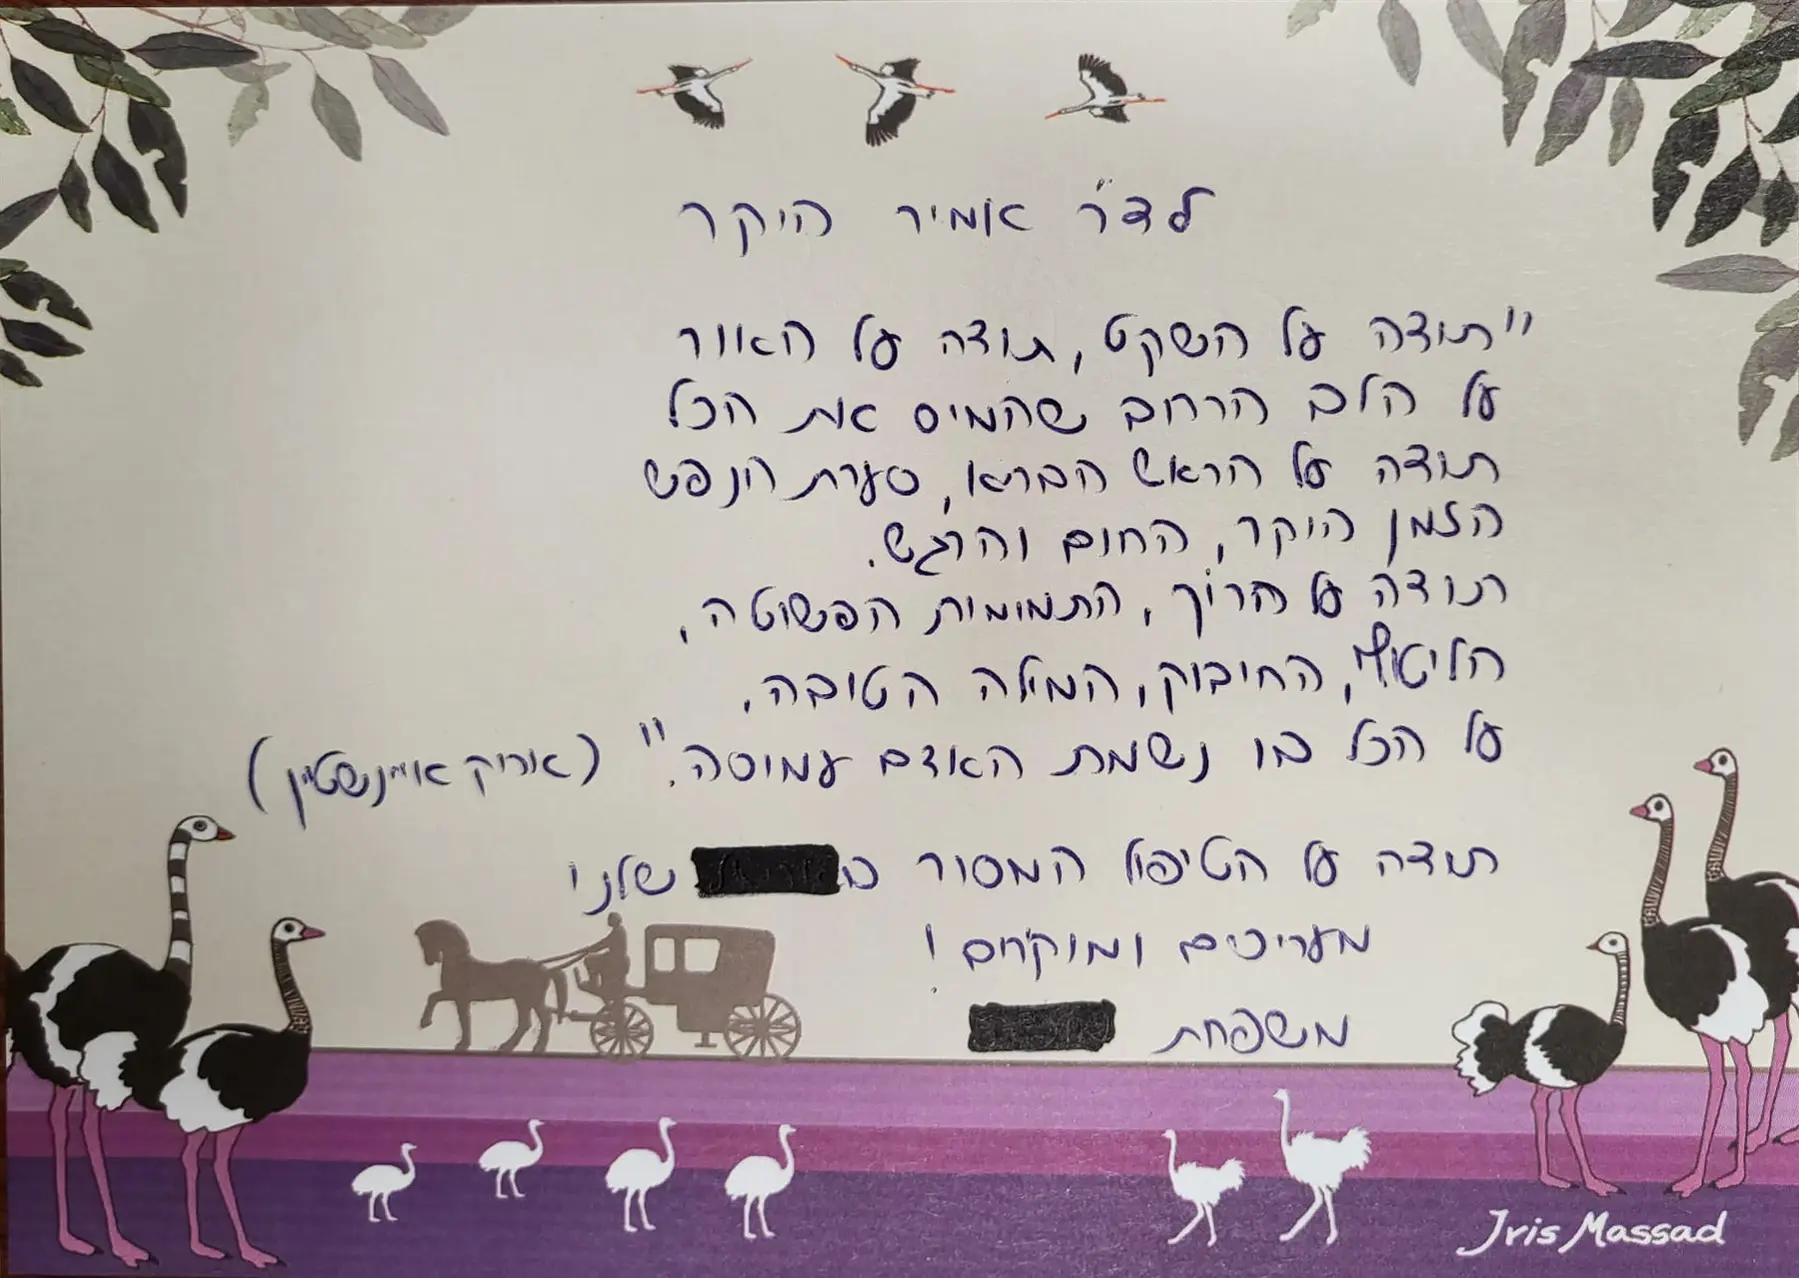 לד"ר אמיר היקר
"תודה על השקט, תודה על האור
על הלב הרחב שהמיס את הכל
תודה על הראש הבריא, סערת הנפש
הזמן היקר, החום והרגש.
תודה על חיוך, התמימות הפשוטה,
הליטוף, החיבוק, המילה הטובה,
על הכל בו נשמת האדם עמוסה." (אריק איינשטיין)
תודה על הטיפול המסור ב שלנו
מעריכים ומוקירים!
משפחת
Iris Massad